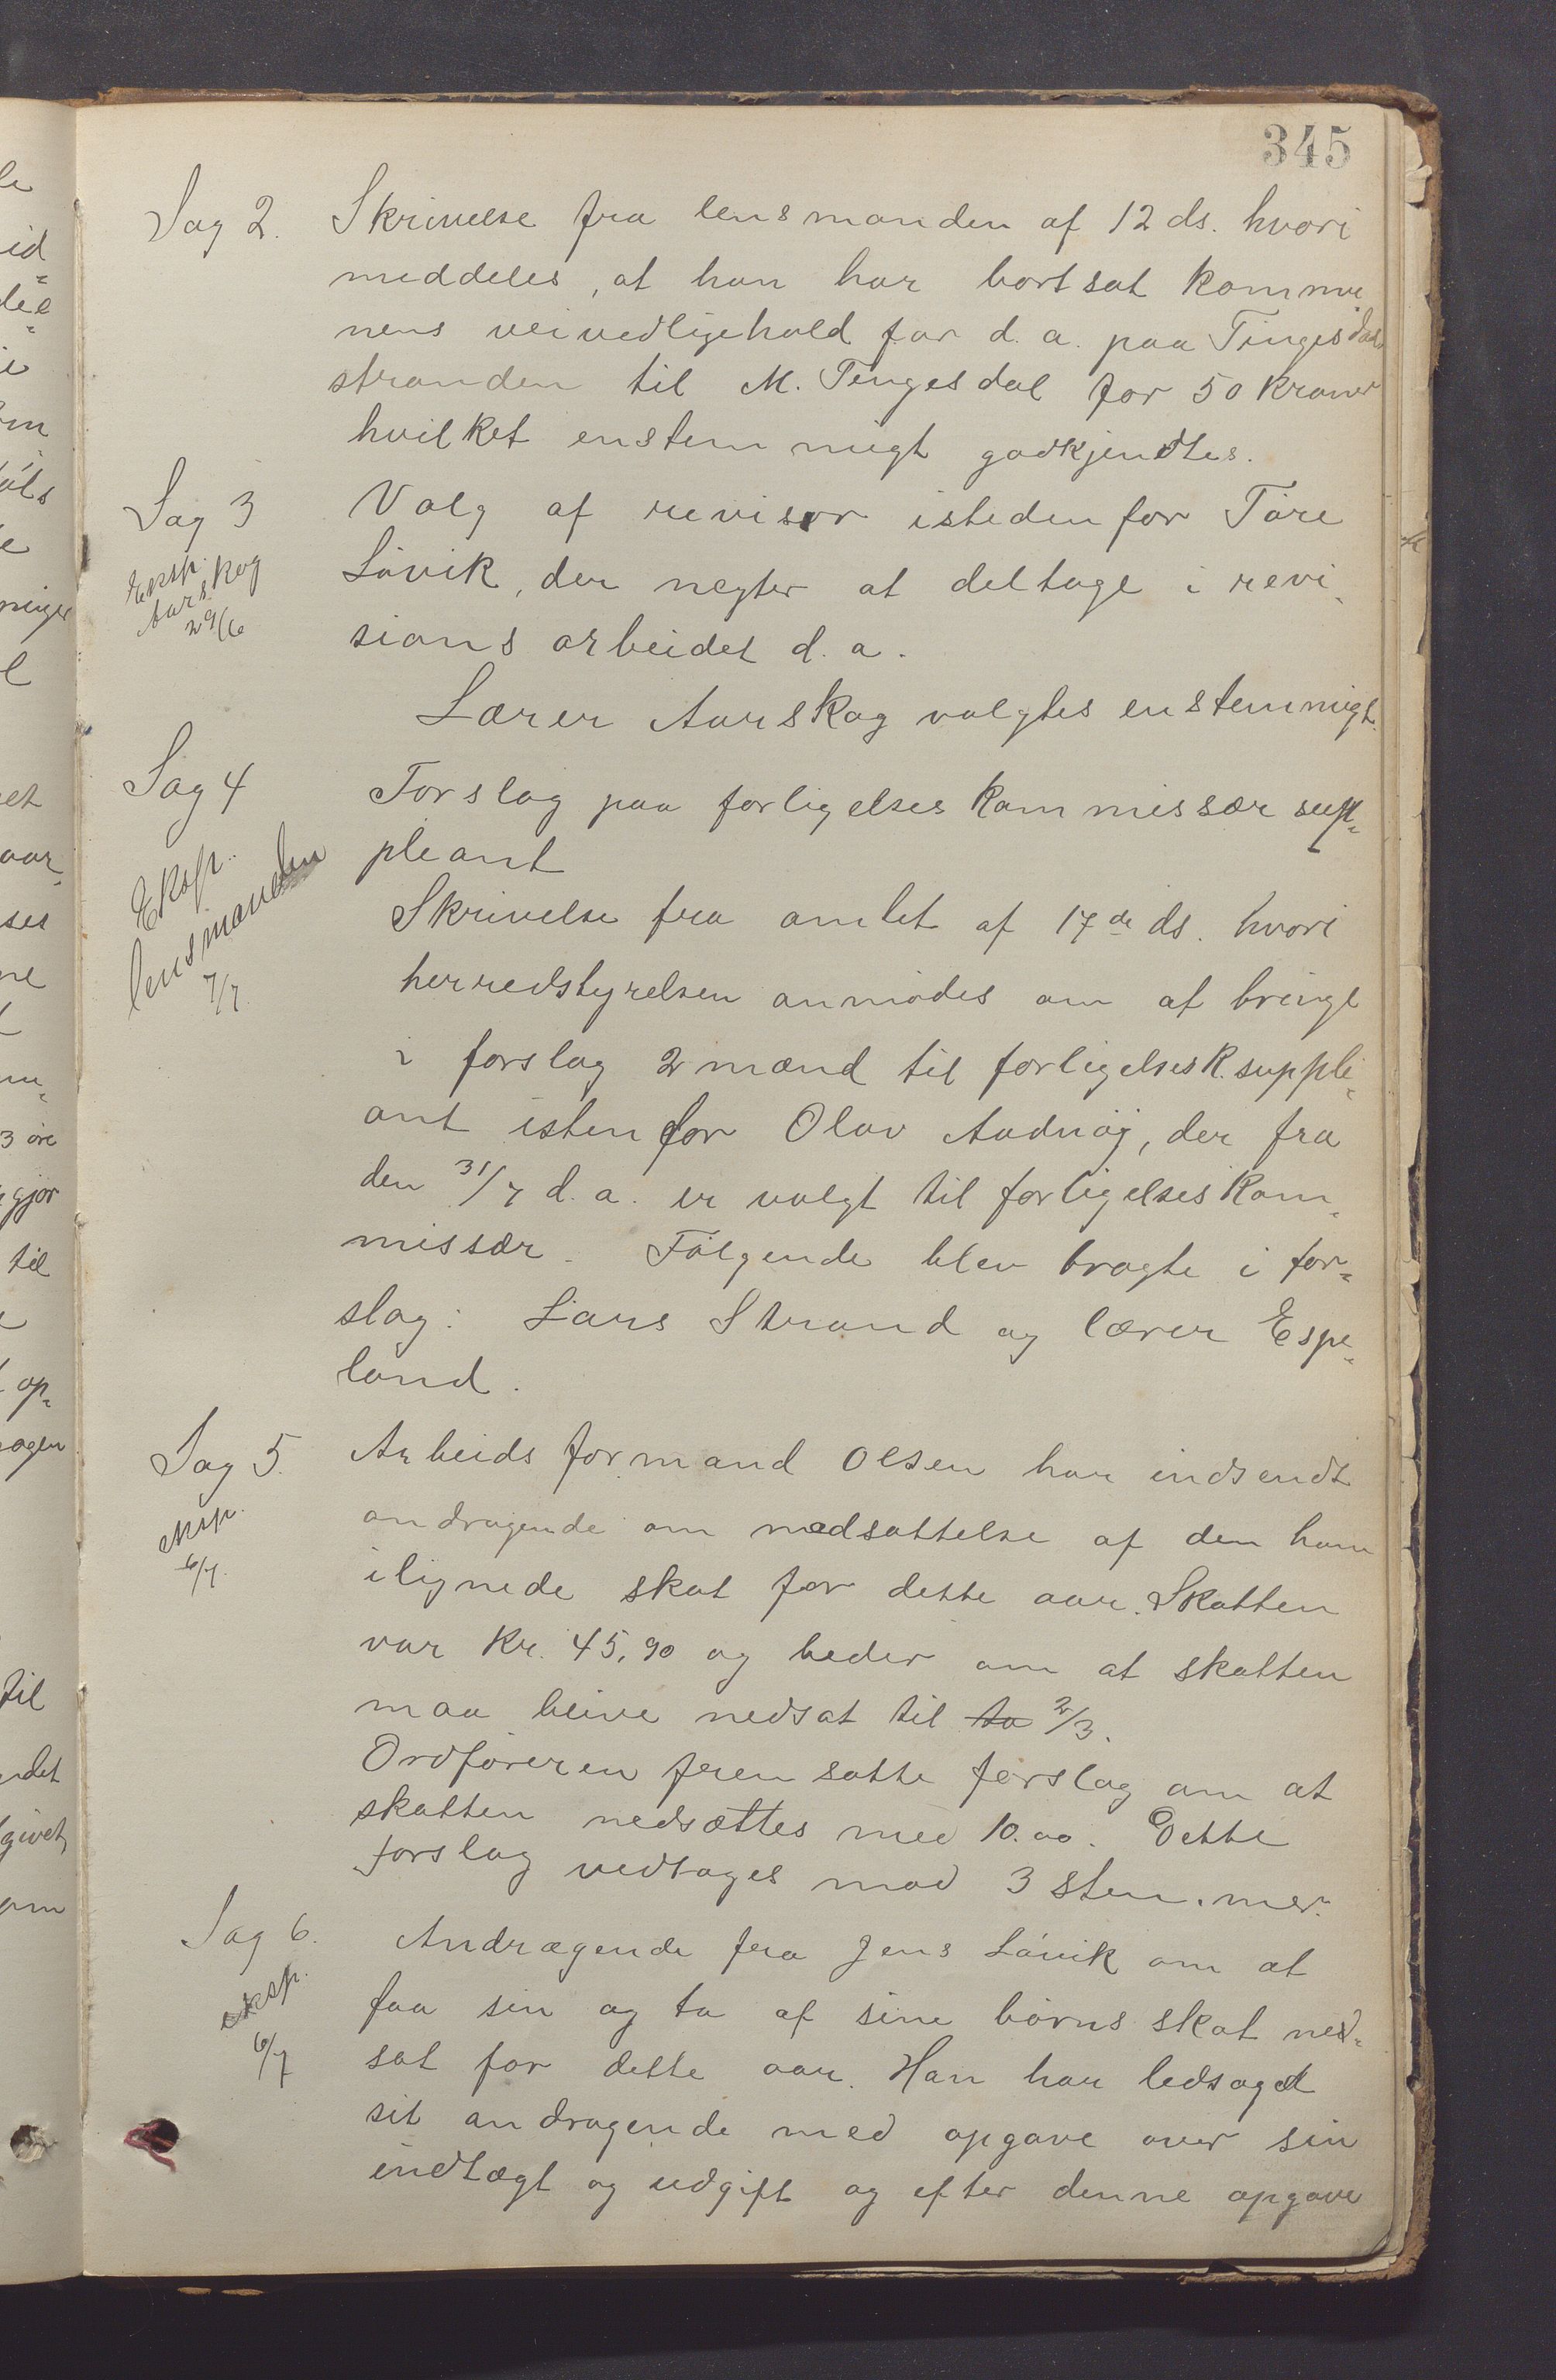 345
Sag 2. Skrivelse fra lensmanden af 12 ds. hvori
meddeles, at han har bortsat kommu
nens veivedligehold for d. a. paa Tingesdal
stranden til M. Tengesdal for 50 kroner
hvilket enstemmigt godkjendtes.
Sag 3 Valg af revisor istedenfor Tore
Eksp.
Aarskog
29/6
Løvik, der negter at deltage i revi-
sions arbeidet d. a.
Lærer Aarskog valgtes enstemmigt.
Sag 4 Forslag paa forligelseskommissær sup-
Eksp.
lensmanden
7/7
pleant
Skrivelse fra amtet af 17de ds. hvori
herredstyrelsen anmodes om at bringe
i forslag 2 mænd til forligelsesk. suppli-
ant istenfor Olav Aadnøj, der fra
den 31/7 d. a. er valgt til forligelseskom-
missær. Følgende blev bragte i for-
slag: Lars Strand og lærer Espe-
land.
Sag 5. Arbeidsformand Olsen har indsendt
eksp.
6/7.
andragende om nedsættelse af den ham
ilignede skat for dette aar. Skatten
var kr. 45,90 og beder om at skatten
maa bliive nedsat til to 2/3.
Ordføreren fremsatte forslag om at
skatten nedsættes med 10.00. Dette
forslag vedtages mod 3 stem.mer.
Sag 6. Andragende fra Jens Løvik om at
eksp.
6/7
faa sin og to af sine børns skat ned-
sat for dette aar. Han har ledsaget
sit andragende med opgave over sin
indtægt og udgift og efter denne opgave